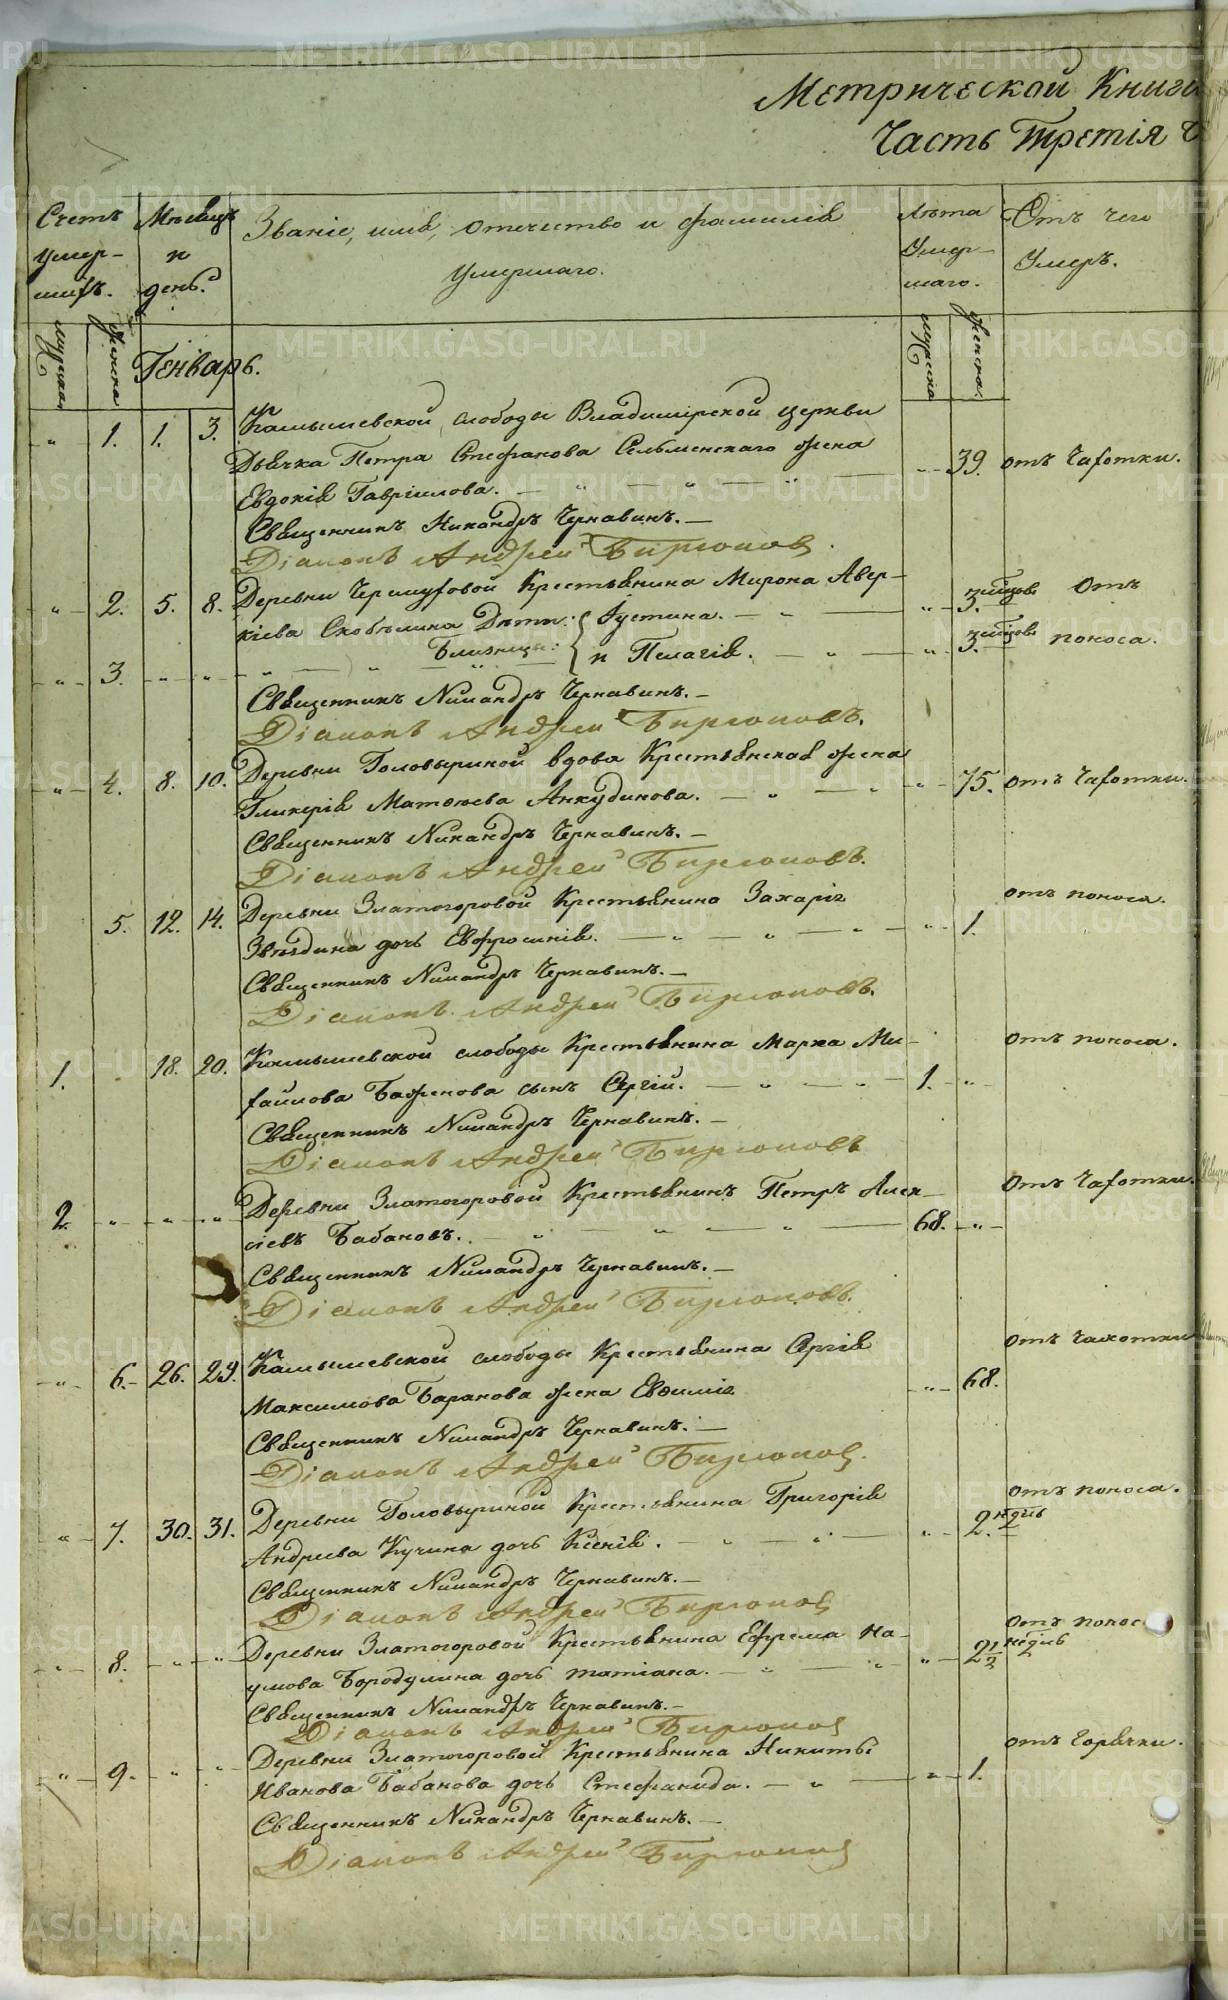 Метрической Книги
Часть Третія
Счетъ умер-шихъ.
Мѣсяцъ и день.
Званіе, имя, отечество и фамилія умершаго.
Лѣта Умер-шаго.
Отъ чего Умеръ.
Мужска
Женска
Генварь.
Мужска
Женска
1. 1. 3. Камышевской слободы Владимірской церкви
Дьячка Петра Стефанова Сельменскаго жена 39. отъ Чахотки.
Евдокія Гавріилова.
Священникъ Никандръ Чернавинъ.
Діаконъ Андрей Бирюковъ
2. 5. 8. Деревни Черемуховой Крестьянина Мирона Авер-
кіева Скобѣлина Дѣти: Іустина. 3. отъ
3. Близнецы: и Пелагія. 3. поноса.
Священникъ Никандръ Чернавинъ.
Діаконъ Андрей Бирюковъ.
4. 8. 10. Деревни Головыриной вдова Крестьянская жена
Гликерія Матѳіева Анкудинова. 75. отъ Чахотки.
Священникъ Никандръ Чернавинъ.
Діаконъ Андрей Бирюковъ.
5. 12. 14. Деревни Златогоровой Крестьянина Захарія отъ поноса.
Звѣздина дочь Евфросинія. 1.
Священникъ Никандръ Чернавинъ.
Діаконъ Андрей Бирюковъ.
1. 18. 20. Камышевской слободы Крестьянина Марка Ми- отъ поноса.
хайлова Баженова сынъ Сергій. 1.
Священникъ Никандръ Чернавинъ.
Діаконъ Андрей Бирюковъ
2. Деревни Златогоровой Крестьянинъ Петръ Алек- отъ Чахотки.
сіевъ Бабановъ. 68.
Священникъ Никандръ Чернавинъ.
Діаконъ Андрей Бирюковъ.
6. 26. 29. Камышевской слободы Крестьянина Сергія отъ Чахотки
Максимова Баранова жена Евѳимія 68.
Священникъ Никандръ Чернавинъ.
Діаконъ Андрей Бирюковъ.
7. 30. 31. Деревни Головыриной Крестьянина Григорія отъ поноса.
Андреева Кучина дочь Ксенія. 2. недѣль
Священникъ Никандръ Чернавинъ.
Діаконъ Андрей Бирюковъ
8. Деревни Златогоровой Крестьянина Ефрема На- отъ понос
умова Бородулина дочь татіана. 2½ недѣль
Священникъ Никандръ Чернавинъ.
Діаконъ Андрей Бирюковъ
9. Деревни Златогоровой Крестьянина Никиты отъ Горячки.
Иванова Бабанова дочь Стефанида. 1.
Священникъ Никандръ Чернавинъ.
Діаконъ Андрей Бирюковъ
METRIKI.GASO-URAL.RU